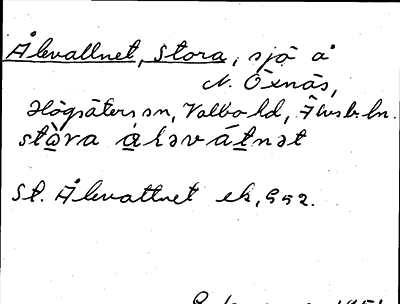 Ålevallnet, Stora, sjö å
N. Öxnäs,
Högsäters sn, Valbo hd, Älvsb. ln.
stòra àləvátnət
St. Ålevattnet ek, 952.